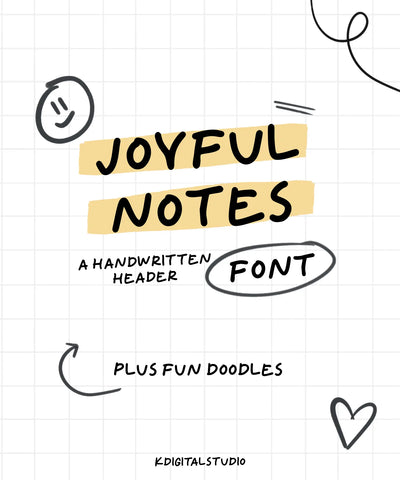 JOYFUL
NOTES
A HANDWRITTEN
HEADER
FONT
PLUS FUN DOODLES
KDIGITALSTUDIO